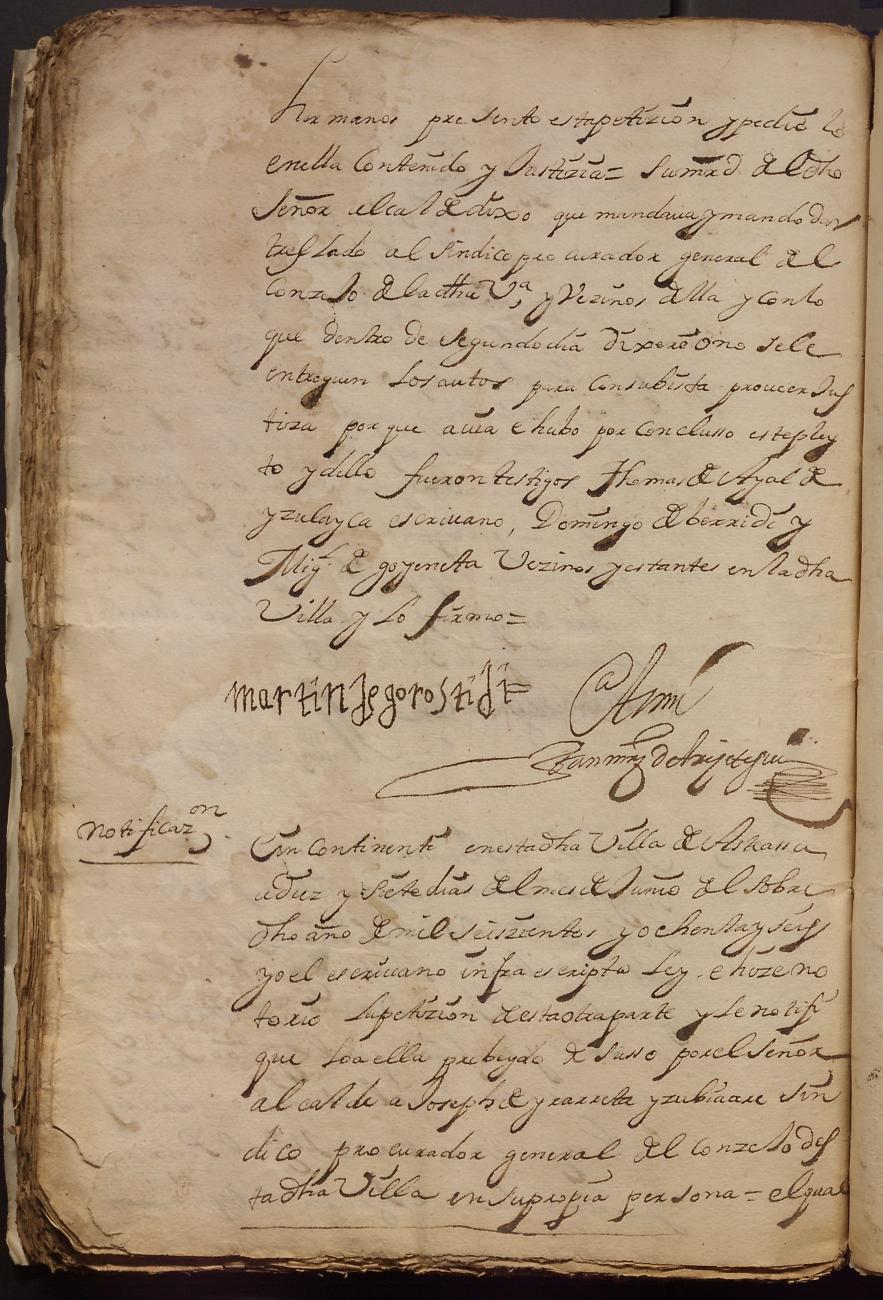 hermanos presento esta petizion y pedio lo
en ella Contenido y Justizia = Su mrd. del dho
Señor alcalde dixo que mandaua y mando dar
treslado al sindico procurador general del
Conzejo de la dha Vª, y Vezinos della y con lo
que dentro de segundo dia dixere o no se le
entreguen los autos para con su bista proueer Jus
tizia por que auia e hubo por conclusso este pley
to y dello fueron testigos Thomas de Ayalde
yzulayca escriuano, Domingo de berridi y
Migl. de goyeneta Vezinos y estantes en la dha
Villa y lo firmo =
martin de gorostidi =
Ante mi
Juan mrz de Arizteguieta
Notificazon
En Continenti en esta dha Villa de Assassu
a diez y siete dias del mes de Junio del sobre
dho año de mil seiszientos y ochenta y seis
yo el escriuano infraescripto ley e hize no
torio la petizion desta otra parte y le notifi
que lo a ella prebeydo de susso por el señor
alcalde a Joseph de yrarreta yzubiaurre sin
dico procurador general del conzejo des
ta dha Villa en su propia persona = el qual